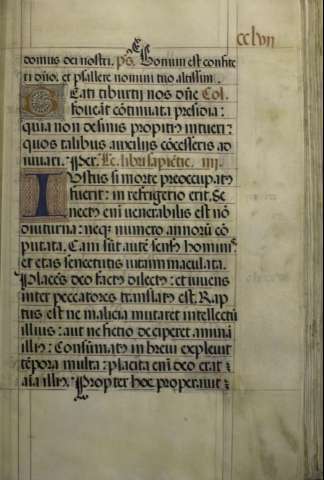 cclvii
domus dei nostri. ps. Bonum est confite
ri dño. et psallere nomini tuo altissim.
Beati tiburtij nos dñe Col.
foueāt cōtinuata presidia:
quia non desinis propiti9 intueri:
quos talibus auxiliis cōcesseris ad
iuuari. Per. Lc. libri sapiētie. iiij.
Iustus si morte preocupat9
fuerit: in refrigerio erit. Se
nect9 eni uenerabilis est nō
diuturna: neqz numero annorū cō
putata. Cani sūt autē sens9 hominis
et etas senectutis uita immaculata.
Placēs deo fact9 dilect9: et uiuens
inter peccatores translat9 est. Rap
tus est ne malicia mutaret intellectū
illius: aut ne fictio deciperet animā
illi9: Consūmat9 in breui expleuit
tēpora multa: placita eni deo erat
aīa illi9: Propter hoc properauit